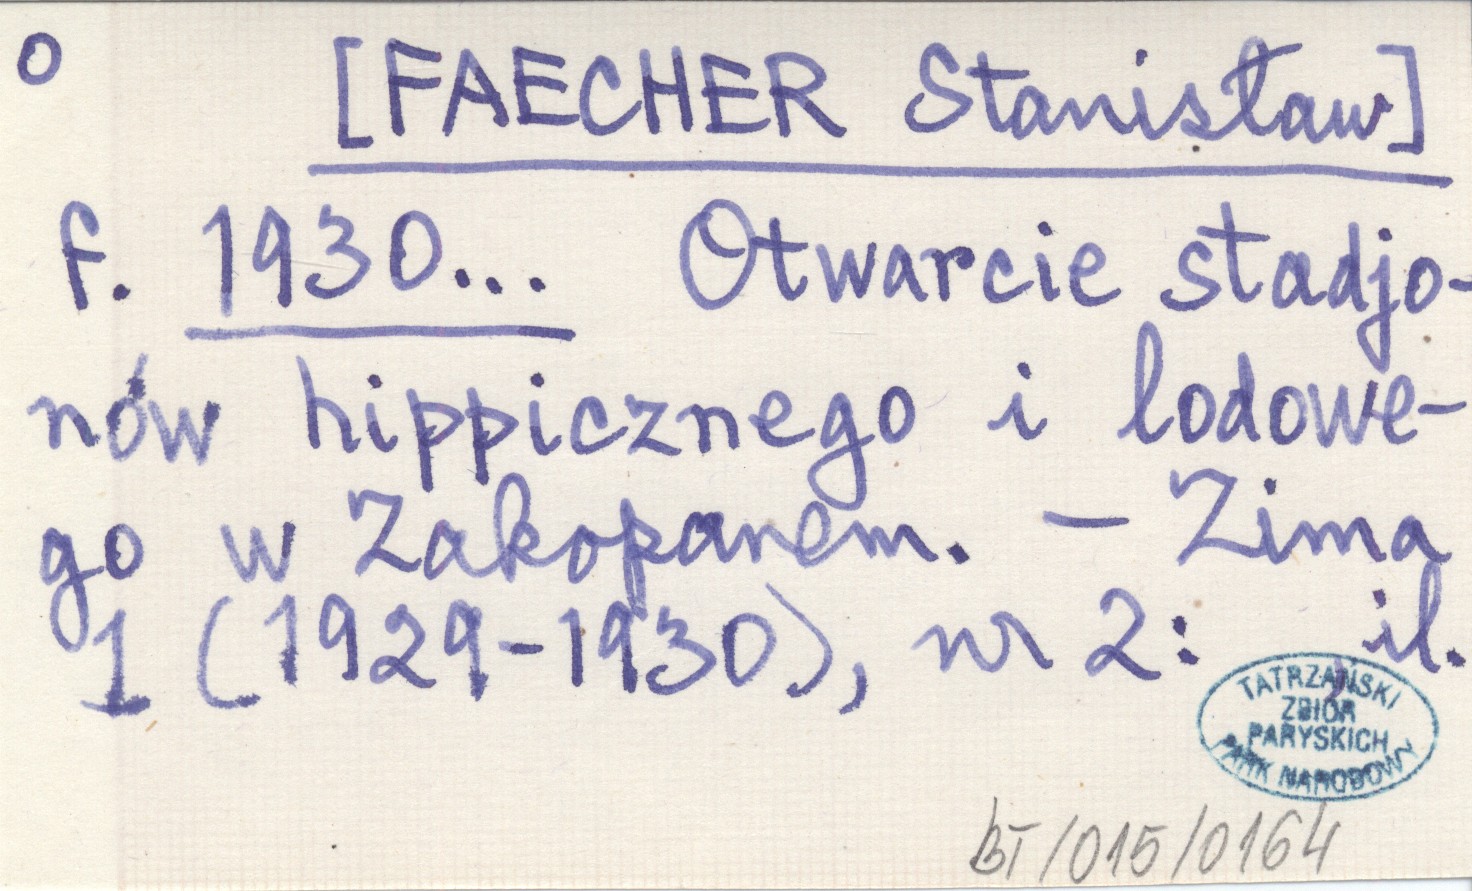 o [FAECHER Stanisław]
f. 1930... Otwarcie stadjo-
nów hippicznego i lodowe-
go w Zakopanem. — Zima
1 (1929-1930), nr 2: , il.
TATRZAŃSKI
ZBIÓR
PARYSKICH
PARK NARODOWY
BT/015/0164